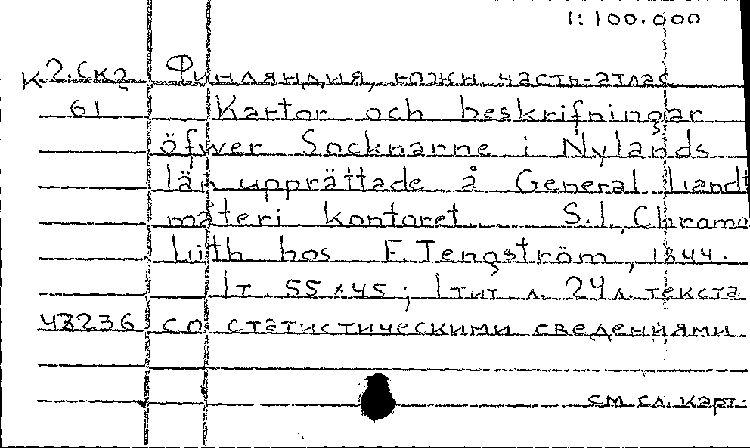 1:100.000
К2.Ск2 Финляндия, южн. часть-атлас
61 Kartor och beskrifningar
öfwer Socknarne i Nylands
län upprättade å General Landt
mäteri kontoret. S.l., Chromo
Lith hos F. Tengström, 1844.
1т. 55×45; 1 тит. л. 24 л. текста
48236 со статистическими сведениями.
см. сл. карт.